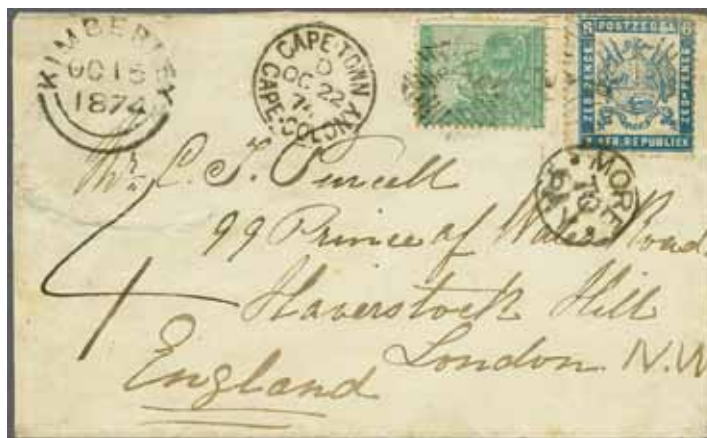 KIMBERLEY
OC 15
1874
CAPE TOWN
D
OC 22
74
CAPE·COLONY
6 POSTZEGEL 6
ZES·PENCE
ZES·PENCE
AFR. REPUBLIEK
MORE
PAY
Mr. C. T. Purcell
99 Prince of Wales Road
Haverstock Hill
London N.W
England
4